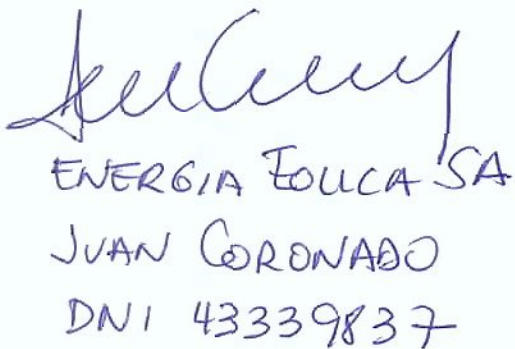 ENERGIA EOLICA SA
JUAN CORONADO
DNI 43339837